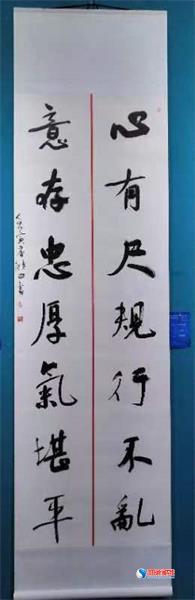 心有尺規行不亂
意存忠厚氣堪平